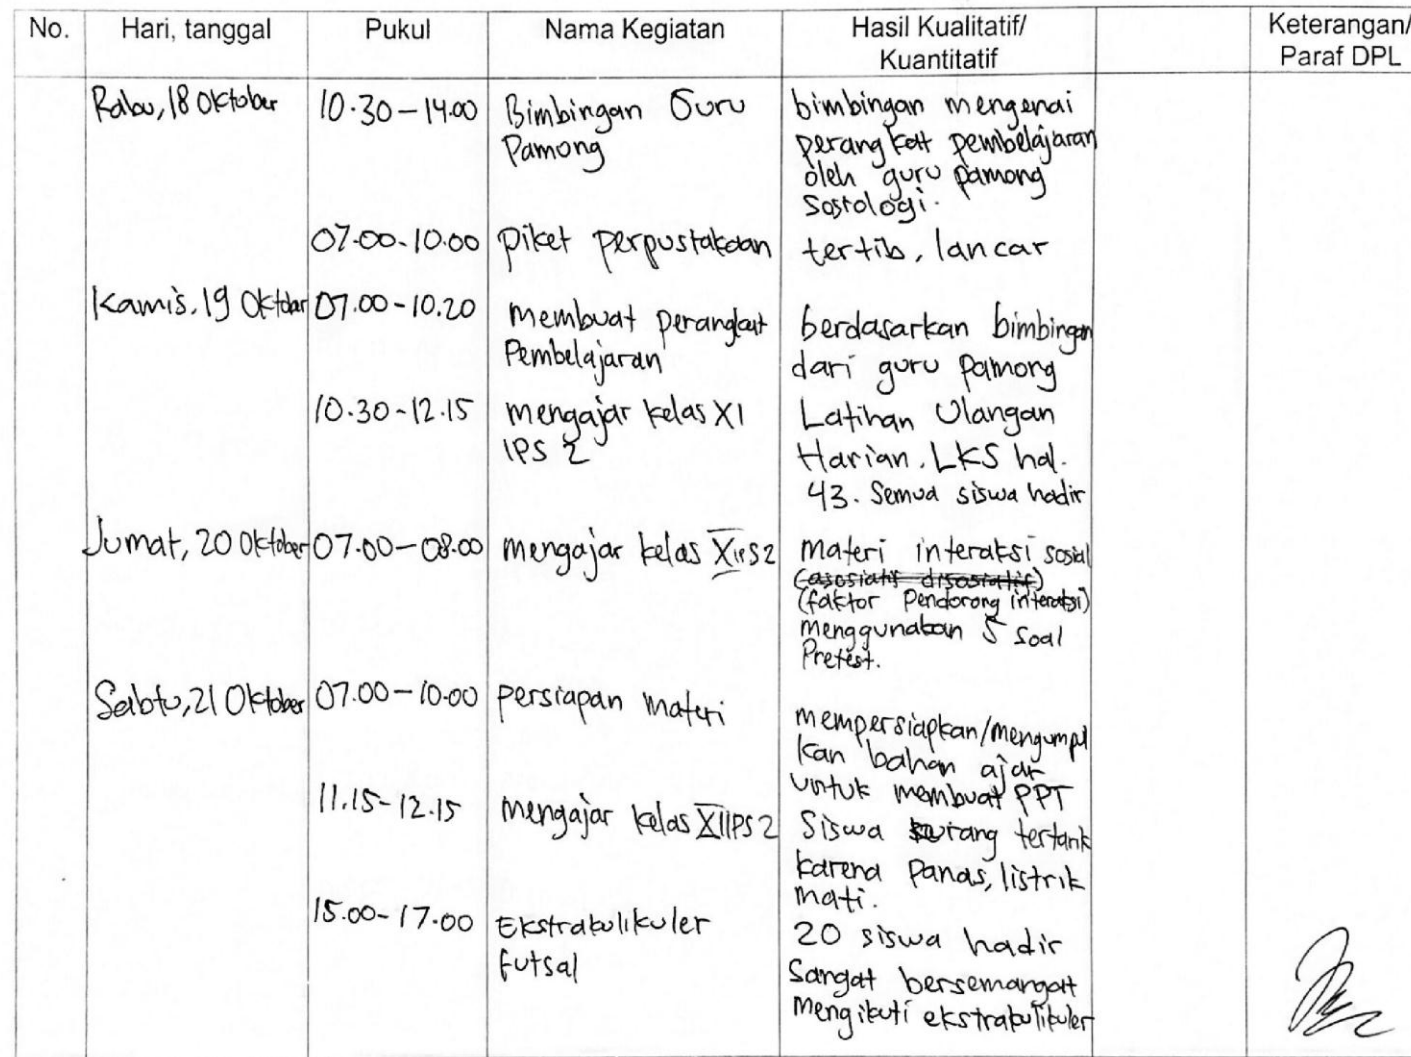 No. Hari, tanggal Pukul Nama Kegiatan Hasil Kualitatif/ Keterangan/
Kuantitatif Paraf DPL
Rabu, 18 Oktober 10.30 – 14.00 Bimbingan Guru bimbingan mengenai
Pamong perangkat pembelajaran
oleh guru pamong
Sosiologi.
07.00-10.00 piket perpustakaan tertib, lancar
Kamis, 19 Oktober 07.00-10.20 membuat perangkat berdasarkan bimbingan
Pembelajaran dari guru pamong
10.30-12.15 mengajar kelas XI Latihan Ulangan
IPS 2 Harian. LKS hal.
43. Semua siswa hadir
Jumat, 20 Oktober 07.00-08.00 mengajar kelas X IPS 2 materi interaksi sosial
(asosiatif disosiatif)
(faktor Pendorong interaksi)
menggunakan 5 soal
Pretest.
Sabtu, 21 Oktober 07.00-10.00 persiapan materi mempersiapkan/mengumpul
kan bahan ajar
untuk membuat PPT
11.15-12.15 mengajar kelas XI IPS 2 Siswa kurang tertarik
karena Panas, listrik
mati.
15.00-17.00 Ekstrakulikuler 20 siswa hadir
futsal Sangat bersemangat
Mengikuti ekstrakulikuler